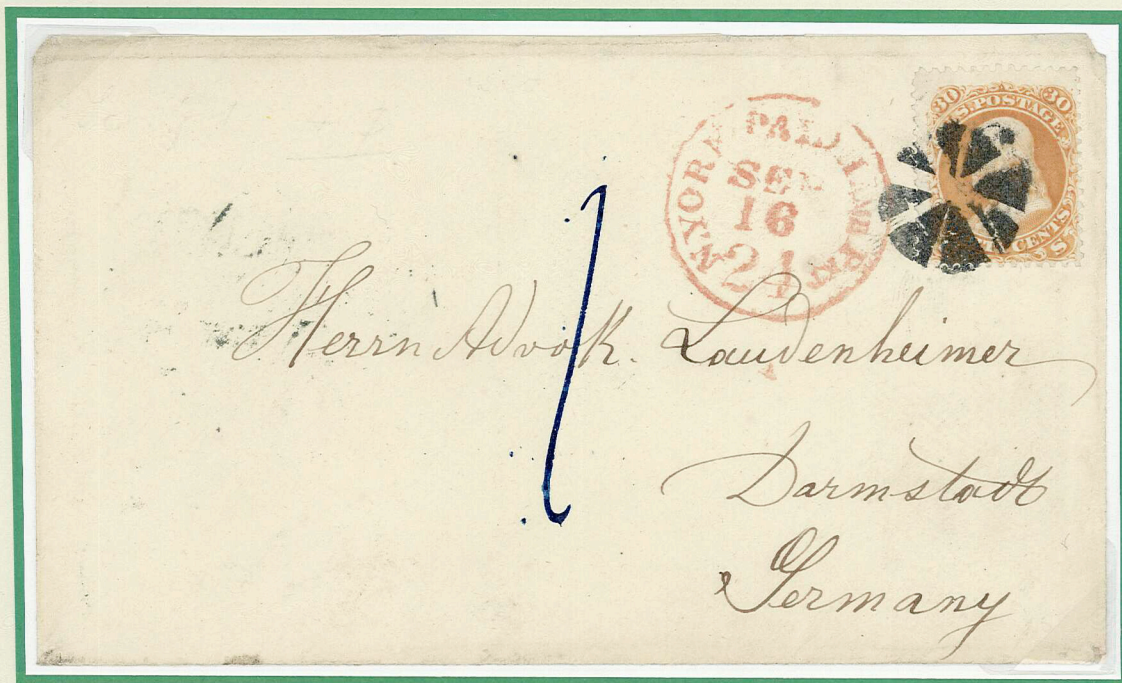 30 30
U.S. POSTAGE
CENTS
S
N. YORK AM. PKT. PAID
SEP
16
24
1
Herrn Advok. Laudenheimer
Darmstadt
Germany